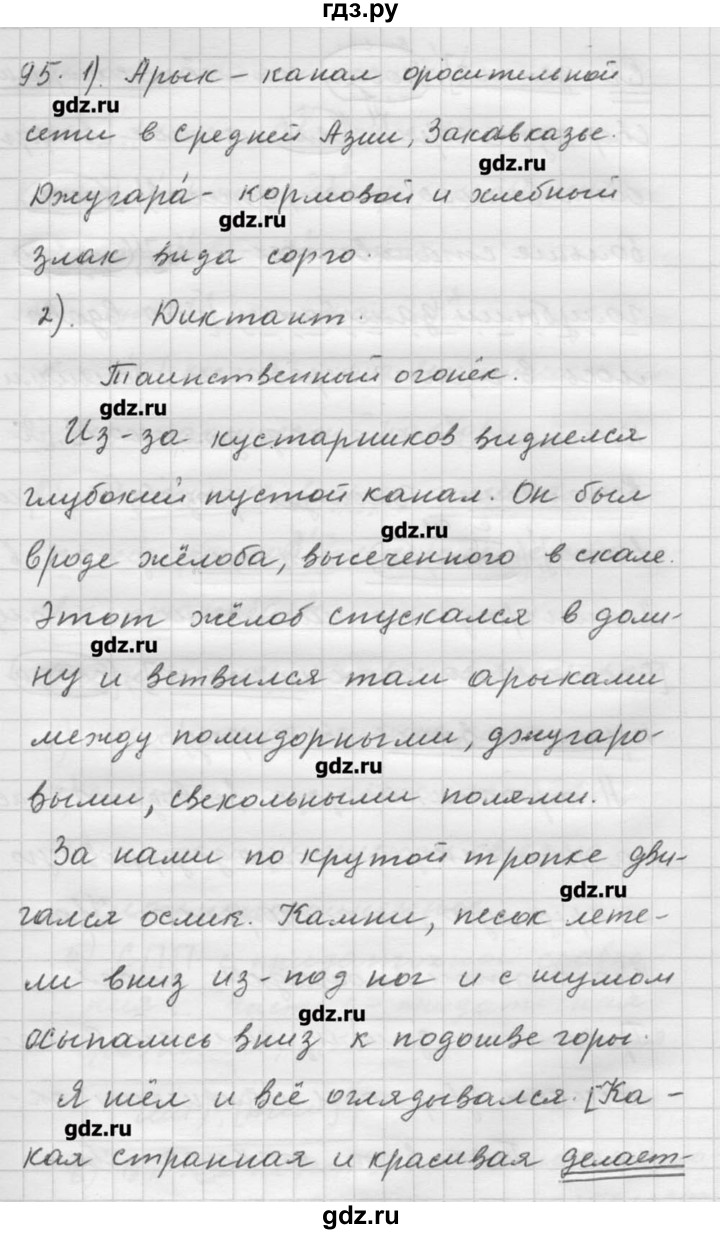 гдз.ру
95. 1). Арык – канал оросительной
gdz.ru
сети в Средней Азии, Закавказье.
gdz.ru
Джугара́ – кормовой и хлебный
gdz.ru
злак вида сорго.
2). Диктант.
Таинственный огонёк.
gdz.ru
Из-за кустарников виднелся
глубокий пустой канал. Он был
gdz.ru
вроде жёлоба, высеченного в скале.
Этот жёлоб спускался в доли-
gdz.ru
ну и ветвился там арыками
между помидорными, джугаро-
gdz.ru
выми, свекольными полями.
За нами по крутой тропке дви-
gdz.ru
гался ослик. Камни, песок лете-
ли вниз из-под ног и с шумом
gdz.ru
осыпались вниз к подошве горы.
Я шёл и всё оглядывался. [Ка-
gdz.ru
кая странная и красивая делает-
gdz.ru